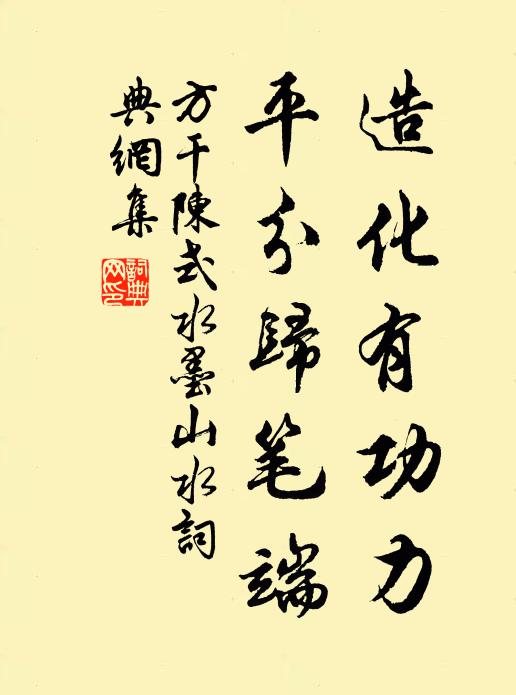 造化有功力
平分歸笔端
方干陳式水墨山水詞
典網集
詞典
网印